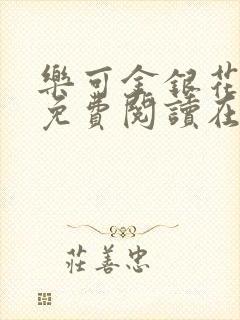 樂可金銀花
免費閱讀在
莊善忠